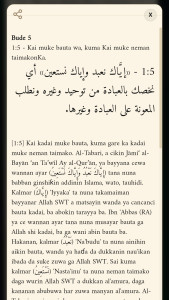 X
Bude 5
1:5 - Kai muke bauta wa, kuma Kai muke neman
taimakonKa.
1:5 - «إِيَّاك نعبد وإياك نستعين» أي
نخصك بالعبادة من توحيد وغيره ونطلب
المعونة على العبادة وغيرها.
[1:5] Kai kadai muke bauta, kuma gare ka kadai
muke neman taimako. Al-Tabari, a cikin Jami' al-
Bayān 'an Ta'wīl Āy al-Qur'ān, ya bayyana cewa
wannan ayar (إِيَّاكَ نَعْبُدُ وَإِيَّاكَ نَسْتَعِينُ) tana nuna
babban ginshiƙin addinin Islama, wato, tauhidi.
Kalmar (إِيَّاكَ) 'Iyyaka' ta nuna takamaiman
bayyanar Allah SWT a matsayin wanda ya cancanci
bauta kadai, ba abokin tarayya ba. Ibn 'Abbas (RA)
ya ce wannan ayar tana nuna musayar bauta ga
Allah shi kadai, ba ga wani abin bauta ba.
Hakanan, kalmar (نَعْبُدُ) 'Na'budu' ta nuna ainihin
aikin bauta, wanda ya haɗa da dukkanin nau'ikan
ibada da suke zuwa ga Allah SWT. Sai kuma
kalmar (نَسْتَعِينُ) 'Nasta'inu' ta nuna neman taimako
daga wurin Allah SWT a dukkan al'amura, daga
kananan ababuwa har zuwa manyan al'amura. Al-